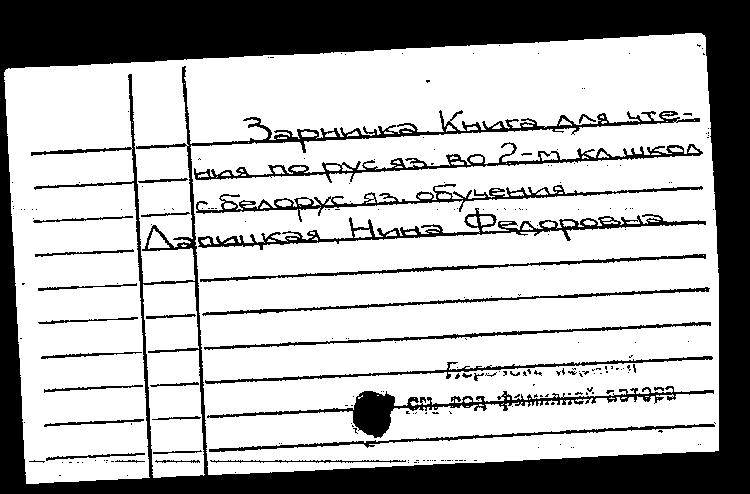 Зарничка Книга для чте-
ния по рус.яз. во 2-м кл.школ
с белорус. яз. обучения.
Лапицкая, Нина Федоровна
см. под фамилией автора